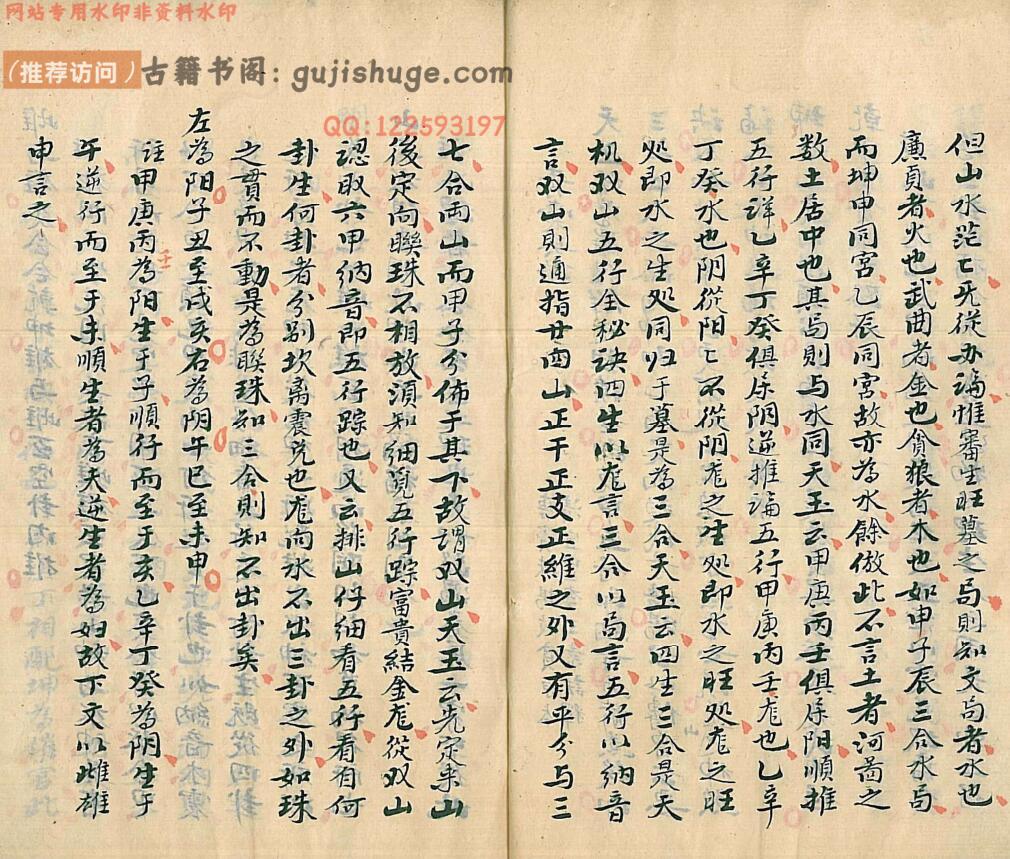 网站专用水印非资料水印
(推荐访问) 古籍书阁: gujishuge.com
QQ:122593197
但山水茫匕旡從办論惟審生旺墓之局則知文局者水也
廉貞者火也武曲者金也貪狼者木也如申子辰三合水局
而坤申同宫乙辰同宮故亦為水餘倣此不言土者河啚之
数土居中也其局則与水同天玉云甲庚丙壬俱属阳順推
五行詳乙辛丁癸俱属阴逆推論五行甲庚丙壬龙也乙辛
丁癸水也阴從阳匕不從阴龙之生処即水之旺処龙之旺
処即水之生処同归于墓是為三合天玉云四生三合是天
机双山五行全秘诀四生以龙言三合以局言五行以納音
言双山則通指廿四山正干正支正維之外又有平分与三
七合両山而甲子分佈于其下故謂双山天玉云先定来山
後定向聯珠不相放須知細覓五行踪富貴結金龙從双山
認取六甲納音即五行踪也又云排山仔細看五行看自何
卦生何卦者分别坎离震兑也龙向水不出三卦之外如珠
之貫而不動是為聯珠知三合則知不出卦矣
左為阳子丑至戌亥右為阴午巳至未申
註甲庚丙壬為阳生于子順行而至于亥乙辛丁癸為阴生于
午逆行而至于未順生者為夫逆生者為妇故下文以雌雄
申言之